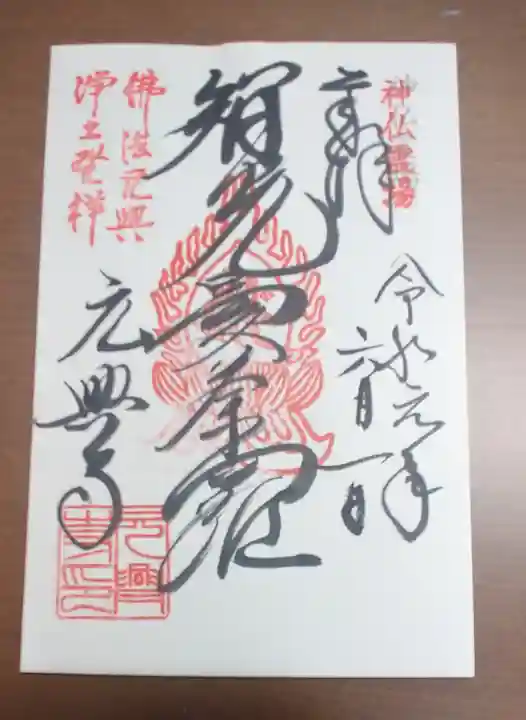 神仏霊場
奉拝
令和元年
六月一日
智光曼荼羅
佛法元興
浄土發祥
元興寺
元興
寺印